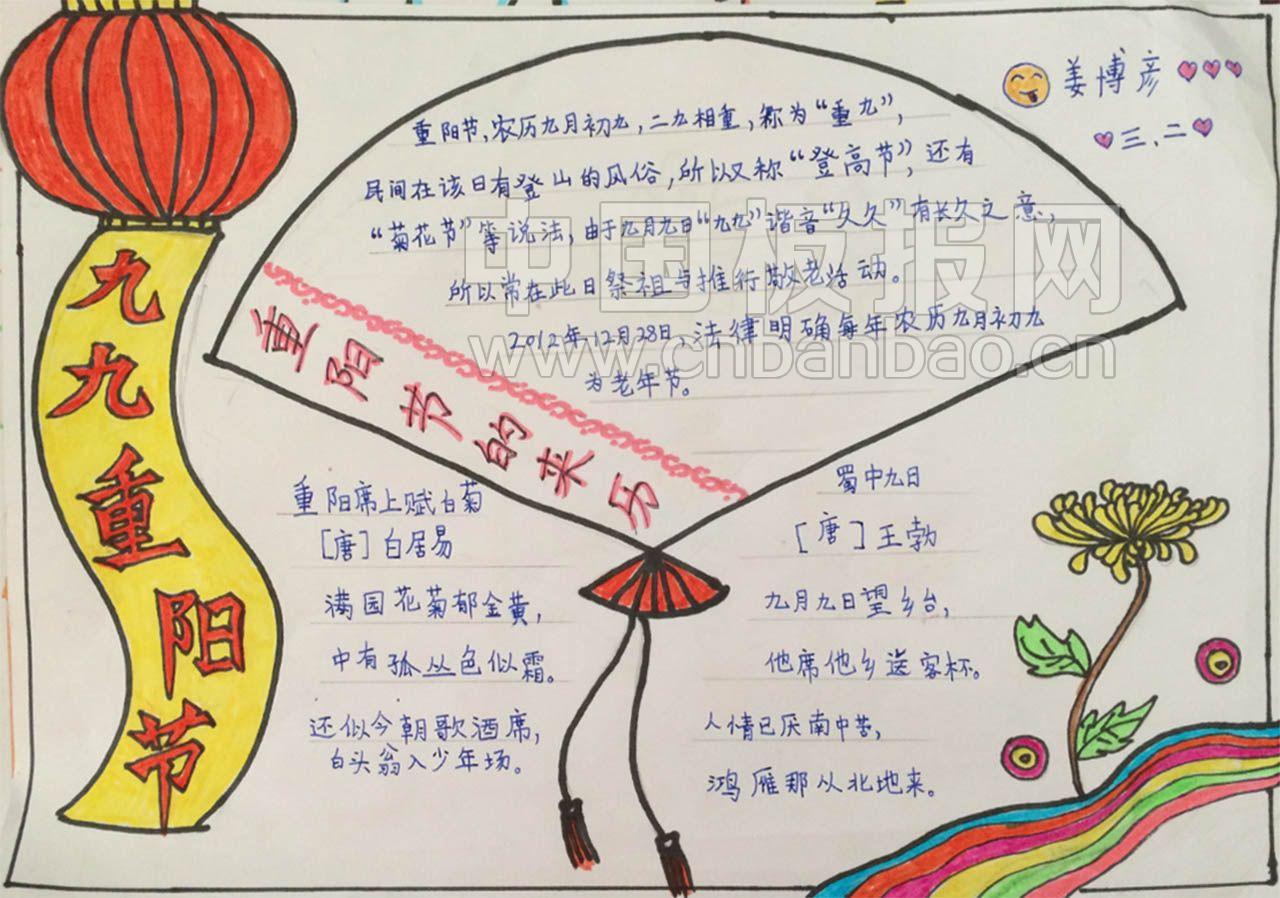 九九重阳节
姜博彦
三、二
重阳节,农历九月初九,二九相重,称为“重九”,
民间在该日有登山的风俗,所以又称“登高节”,还有
“菊花节”等说法,由于九月九日“九九”谐音“久久”有长久之意,
所以常在此日祭祖与推行敬老活动。
2012年,12月28日,法律明确每年农历九月初九
为老年节。
重阳节的来历
重阳席上赋白菊
[唐]白居易
满园花菊郁金黄,
中有孤丛色似霜。
还似今朝歌酒席,
白头翁入少年场。
蜀中九日
[唐]王勃
九月九日望乡台,
他席他乡送客杯。
人情已厌南中苦,
鸿雁那从北地来。
中国板报网
www.chbanbao.cn